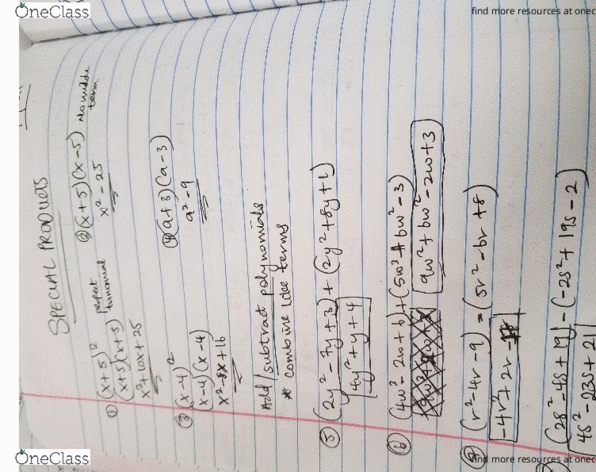 OneClass
find more resources at onec
SPECIAL PRODUCTS
① (x+5)² perfect binomial
(x+5)(x+5)
x²+10x+25
② (x+5)(x-5) No middle term
x² - 25
③ (x-4)²
(x-4)(x-4)
x²-8x+16
④ (a+3)(a-3)
a²-9
Add/subtract polynomials
* combine like terms
⑤ (2y²-7y+3)+(2y²+8y+1)
4y²+y+4
⑥ (4w³-2w+6)+(5w³+6w²-3)
9w³+6w²-2w+3
(r²-4r-9)-(5r²-6r+8)
-4r²+2r-17
(2s²-4s+19)-(-2s²+19s-2)
4s²-23s+21
OneClass
find more resources at onec